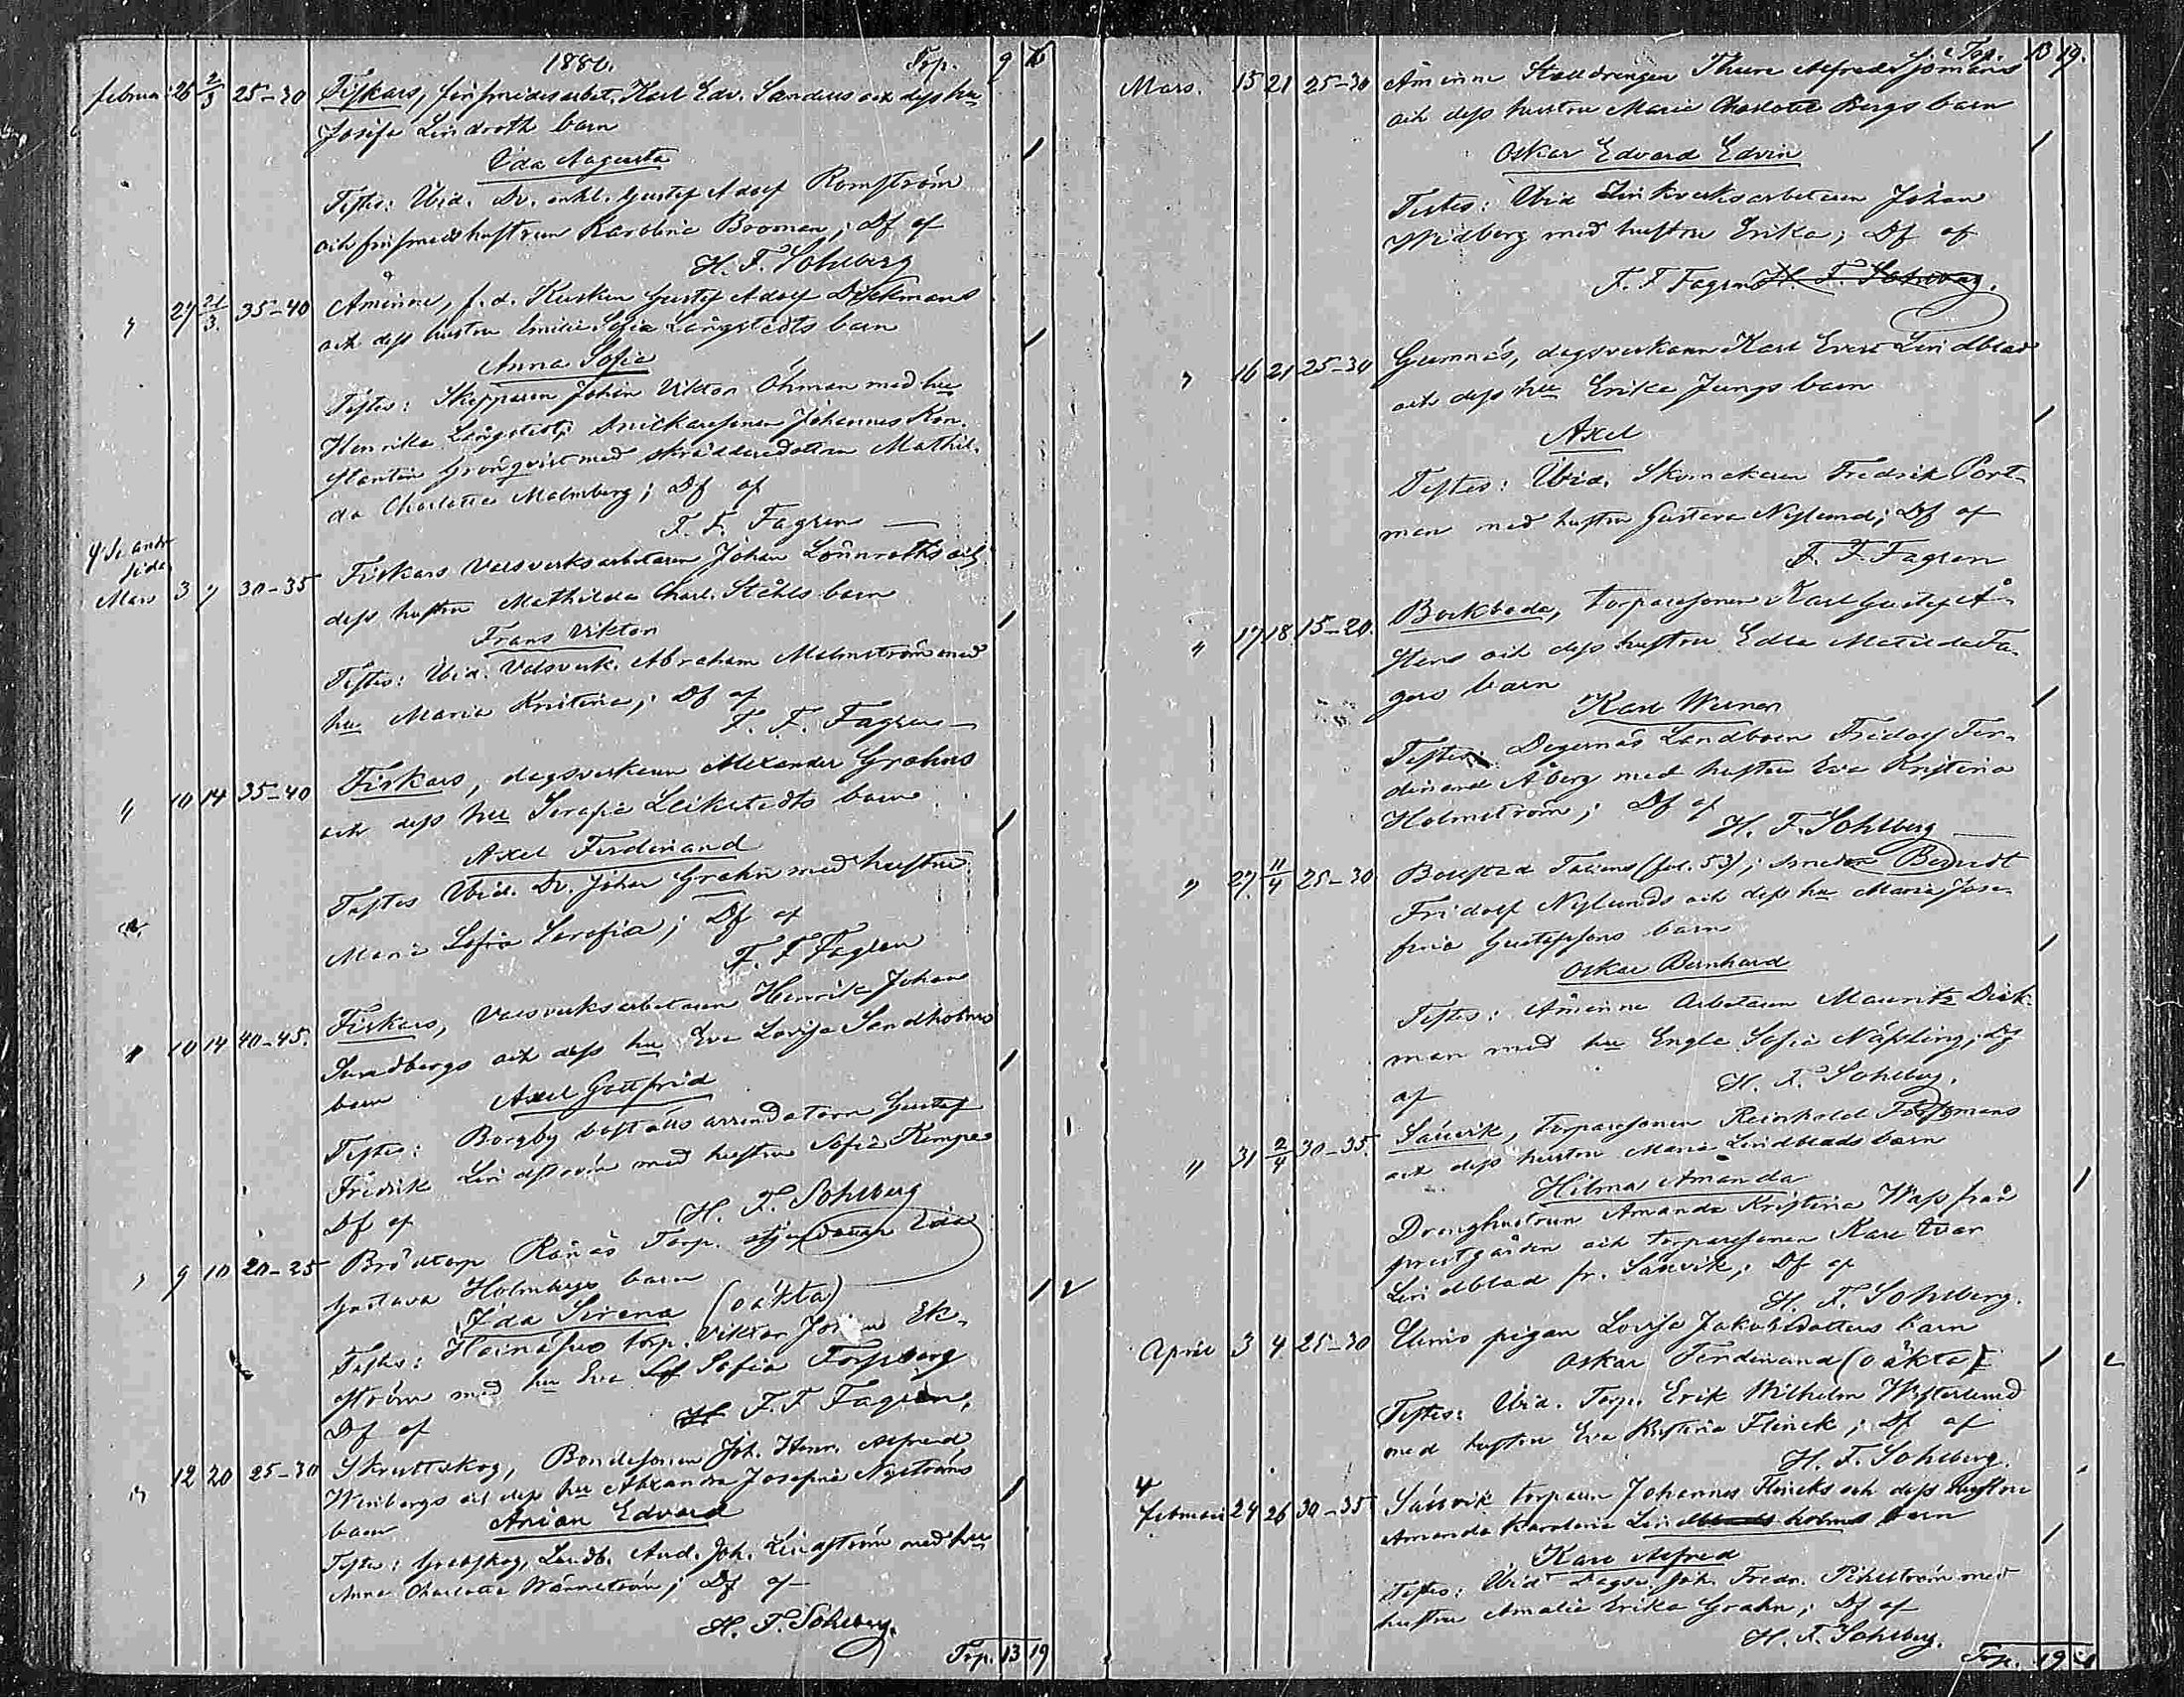 1880. Trp. 9
februari 26 2/3 25-30 Fiskars, finsmidesarbet. Karl Edv. Sandells och dess hu
Josefa Lindroth barn
Ida Augusta
Testes: Ibid. Dr. enkl. Gustaf Adolf Romström
och finsmeds hustrun Karolina Broman; Df af
H. F. Sohlberg
" 27 21/3 35-40 Åminne, f.d. Kusken Gustaf Adolf Dickmans
och dess hustru Emilia Sofia Långstedts barn
Anna Sofia
Testes: Skepparen Johan Viktor Öhman med hu
Henrika Långstedt; Snickaresonen Johannes Kon-
stantin Grönqvist med skräddaredottren Mathil-
da Charlotta Malmberg; Df af
F. F. Fagren
sida
Mars 3 7 30-35 Fiskars Valsverksarbetaren Johan Lönnroths och
dess hustru Mathilda Charl. Ståhls barn
Frans Viktor
Testes: Ibid. Valsverk. Abraham Malmström med
hu Maria Kristina; Df af
F. F. Fagren
" 10 14 35-40 Fiskars, dagsverkaren Alexander Grahns
och dess hu Serafia Leikstedts barn
Axel Ferdinand
Testes Ibid. Dr. Johan Grahn med hustru
Maria Sofia Serafia; Df af
F. F. Fagren
" 10 14 40-45. Fiskars, Valsverksarbetaren Henrik Johan
Sundbergs och dess hu Eva Lovisa Sandholms
barn Axel Gottfrid
Testes: Borgby bostälsarrendatorn Gustaf
Fredrik Lindström med hustru Sofia Kempe
Df af H. F. Sohlberg
" 9 10 20-25 Brödtorp Rånäs Torp. stjufdotter Ida
Gustava Holmbergs barn
Ida Sirena (oäkta)
Testes: torp. Viktor Johan Ek-
ström med hu Eva Sofia Forsberg
Df af F. F. Fagren,
" 12 20 25-30 Skruttskog, Bondesonen Joh. Henr. Alfred
Winbergs och dess hu Alexandra Josefina Nyströms
barn Arian Edvard
Testes: Landb. And. Joh. Lindström med hu
Anna Charlotta Wännström; Df af
H. F. Sohlberg.
Trp. 13 19
Trp. 13 19.
Mars. 15 21 25-30 Åminne Stalldrengen Thure Alfred Sjömans
och dess hustru Maria Charlotta Bergs barn
Oskar Edvard Edvin
Testes: Ibid Johan
Widberg med hustru Erika; Df af
F. F. Fagren H. F. Sohlberg.
" 16 21 25-30 Gumnäs, dagsverkaren Karl Evert Lindblad
och dess hu Erika Jungs barn
Axel
Testes: Ibid. Skomakaren Fredrik Port-
man med hustru Gustava Nylund; Df af
F. F. Fagren
" 17 18 15-20. Bockboda, torparesonen Karl Gustaf Å-
stens och dess hustru Edla Matilda Fa-
gers barn
Karl Werner
Testes: Degernäs Landboen Fridolf Fer-
dinand Åberg med hustru Eva Kristina
Holmström; Df af
H. F. Sohlberg
" 27 11/4 25-30 (fol. 53); smeden Berndt
Fridolf Nylunds och dess hu Maria Jose-
fina Gustafssons barn
Oskar Bernhard
Testes: Åminne Arbetaren Mauritz Dick-
man med hu Engla Sofia Nässling; Df
af H. F. Sohlberg.
" 31 2/4 30-35. Sånvik, torparesonen Reinhold Forsmans
och dess hustru Maria Lindblads barn
Hilma Amanda
Drenghustrun Amanda Kristina Wass från
prestgården och torparesonen Karl Ivar
Lindblad fr. Sånvik; Df af
H. F. Sohlberg.
April 3 4 25-30 pigan Lovisa Jakobsdotters barn
Oskar Ferdinand (oäkta)
Testes: Ibid. Torp. Erik Wilhelm Westerlund
med hustru Eva Kristina Flinck; Df af
H. F. Sohlberg.
februari 24 26 30-35 Sånvik torparen Johannes Flincks och dess hustru
Amanda Karolina Lindholms barn
Karl Alfred
Testes: Ibid Dagsv. Joh. Fredr. Pihlström med
hustru Amalia Erika Grahn; Df af
H. F. Sohlberg.
Trp. 19